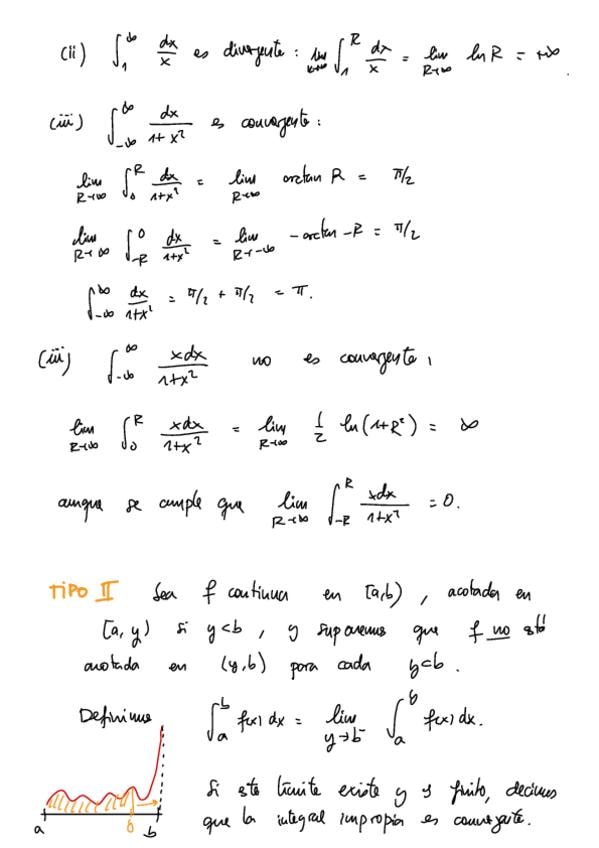 (ii) ∫_1^∞ dx/x es divergente : lim_{R→∞} ∫_1^R dx/x = lim_{R→∞} ln R = +∞.
(iii) ∫_{-∞}^∞ dx/(1+x²) es convergente :
lim_{R→∞} ∫_0^R dx/(1+x²) = lim_{R→∞} arctan R = π/2
lim_{R→∞} ∫_{-R}^0 dx/(1+x²) = lim_{R→-∞} -arctan -R = π/2
∫_{-∞}^∞ dx/(1+x²) = π/2 + π/2 = π.
(iii) ∫_{-∞}^∞ xdx/(1+x²) no es convergente,
lim_{R→∞} ∫_0^R xdx/(1+x²) = lim_{R→∞} 1/2 ln(1+R²) = ∞
aunque se cumple que lim_{R→∞} ∫_{-R}^R xdx/(1+x²) = 0.
TIPO II Sea f continua en [a,b) , acotada en
[a, y) si y<b , y suponemos que f no está
acotada en (y,b) para cada y<b.
Definimos ∫_a^b f(x) dx = lim_{y→b⁻} ∫_a^y f(x) dx.
Si este límite existe y es finito, decimos
que la integral impropia es convergente.
a b